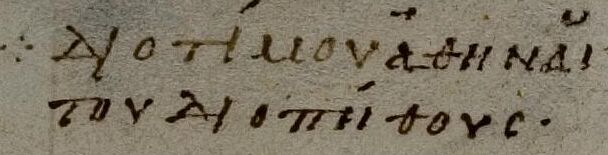 ⁘ Διοτίμου ἀθηναίου
του Διοπήθους·